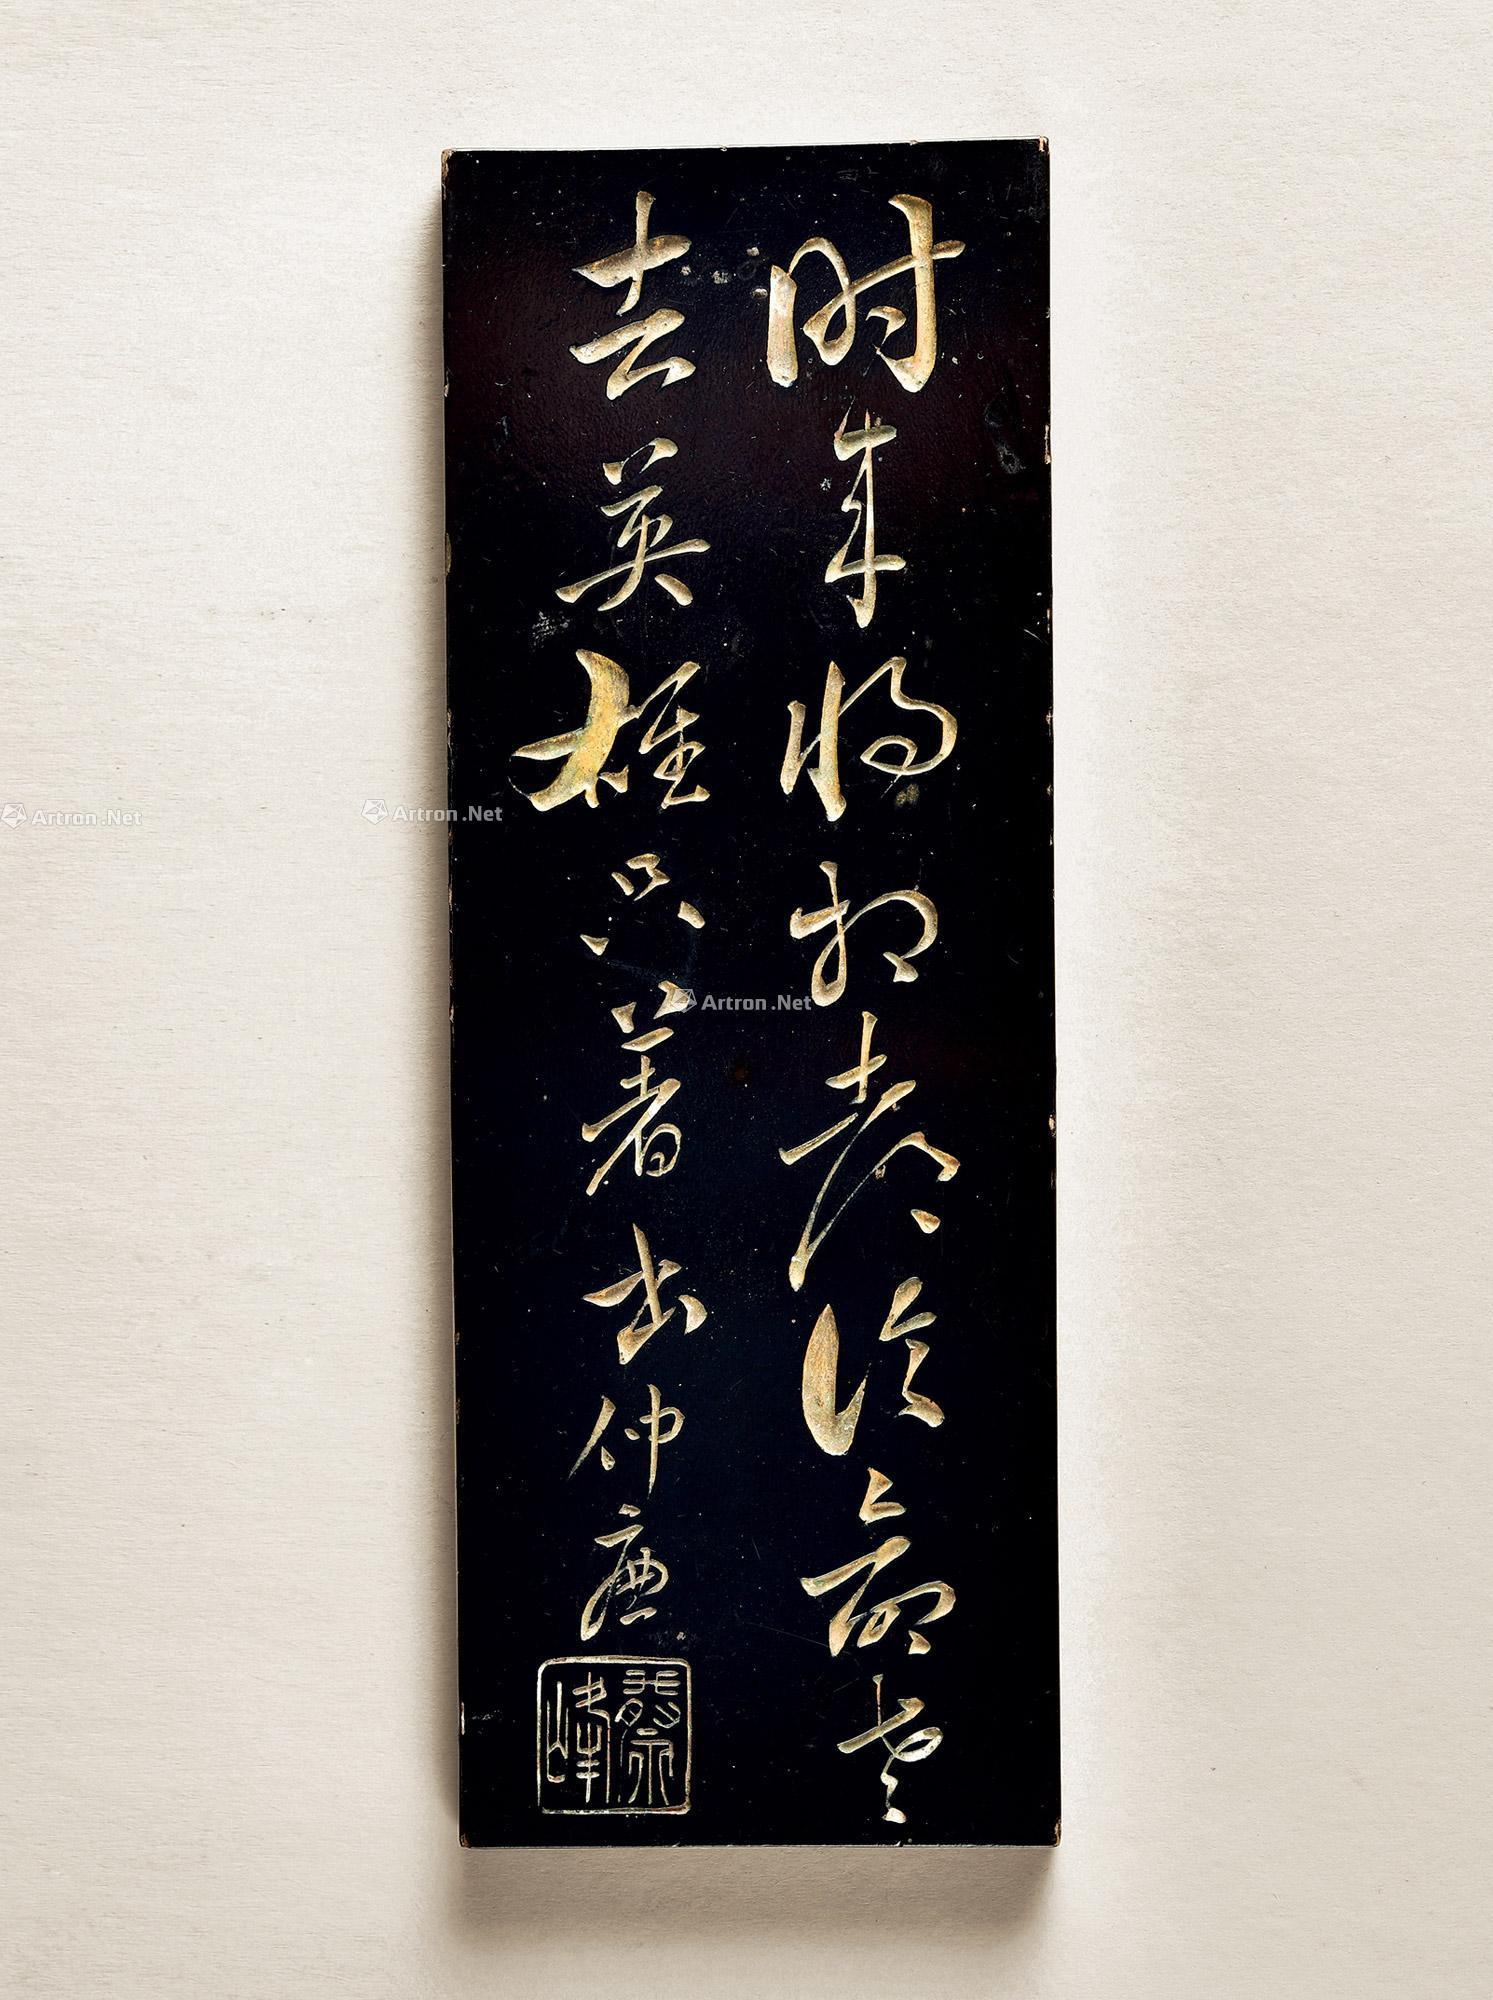 时来将相寿险命老
去英雄只著书仲廉
蔡峰
Artron.Net
Artron.Net
Artron.Net